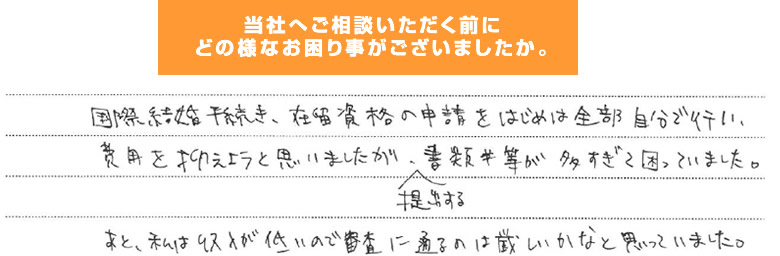 当社へご相談いただく前に
どの様なお困り事がございましたか。
国際結婚手続き、在留資格の申請をはじめは全部自分で行い、
費用を抑えようと思いましたが、書類等が多すぎて困っていました。
提出する
あと、私は収入が低いので審査に通るのは厳しいかなと思っていました。